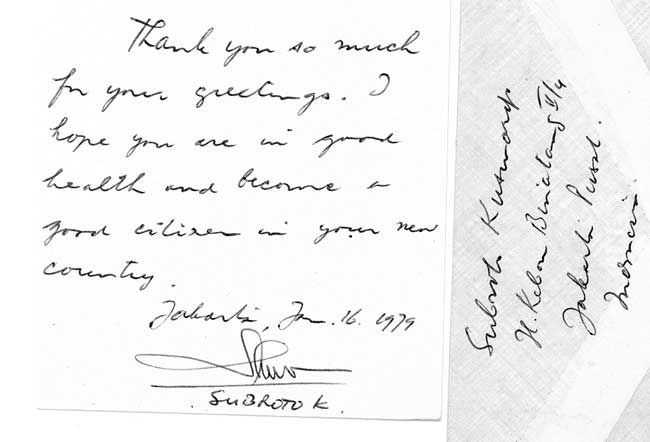 Thank you so much
for your greetings. I
hope you are in good
health and become a
good citizen in your new
country.
Jakarta, Jan. 16. 1979
SUBROTO K.
Subroto Kusmardjo
Jl. Kebon Binatang II/4
Jakarta Pusat.
Indonesia.